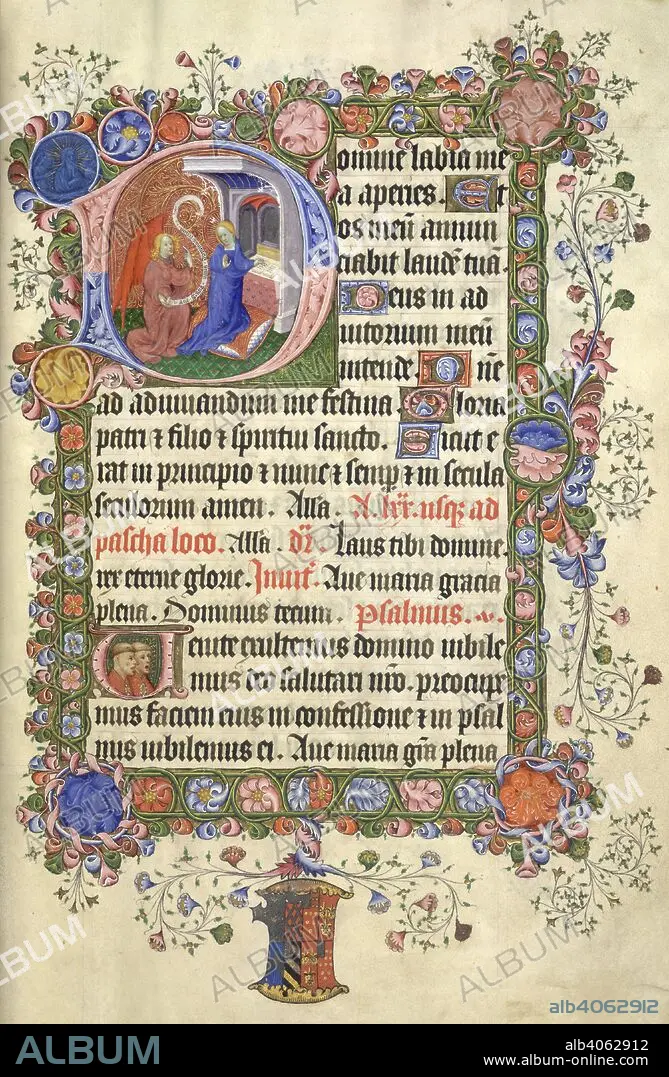 omine labia me
a aperies. Et
os meū annun
ciabit laudē tuā.
Deus in ad
iutorium meū
intende. Dñe
ad adiuuandum me festina Gloria
patri & filio & spiritui sancto. Sicut e
rat in principio & nunc & semp & in secula
seculorum amen. Alla. A lxx. usq; ad
pascha loco. Alla. dr̄ Laus tibi domine.
rex eterne glorie. Inuit. Aue maria gracia
plena. Dominus tecum. psalmus. v.
Uenite exultemus domino iubile
mus deo salutari nr̄o. preocupe
mus faciem eius in confessione & in psal
mis iubilemus ei. Aue maria grā plena
alb4062912
ALBUM
alb4062912
www.album-online.com